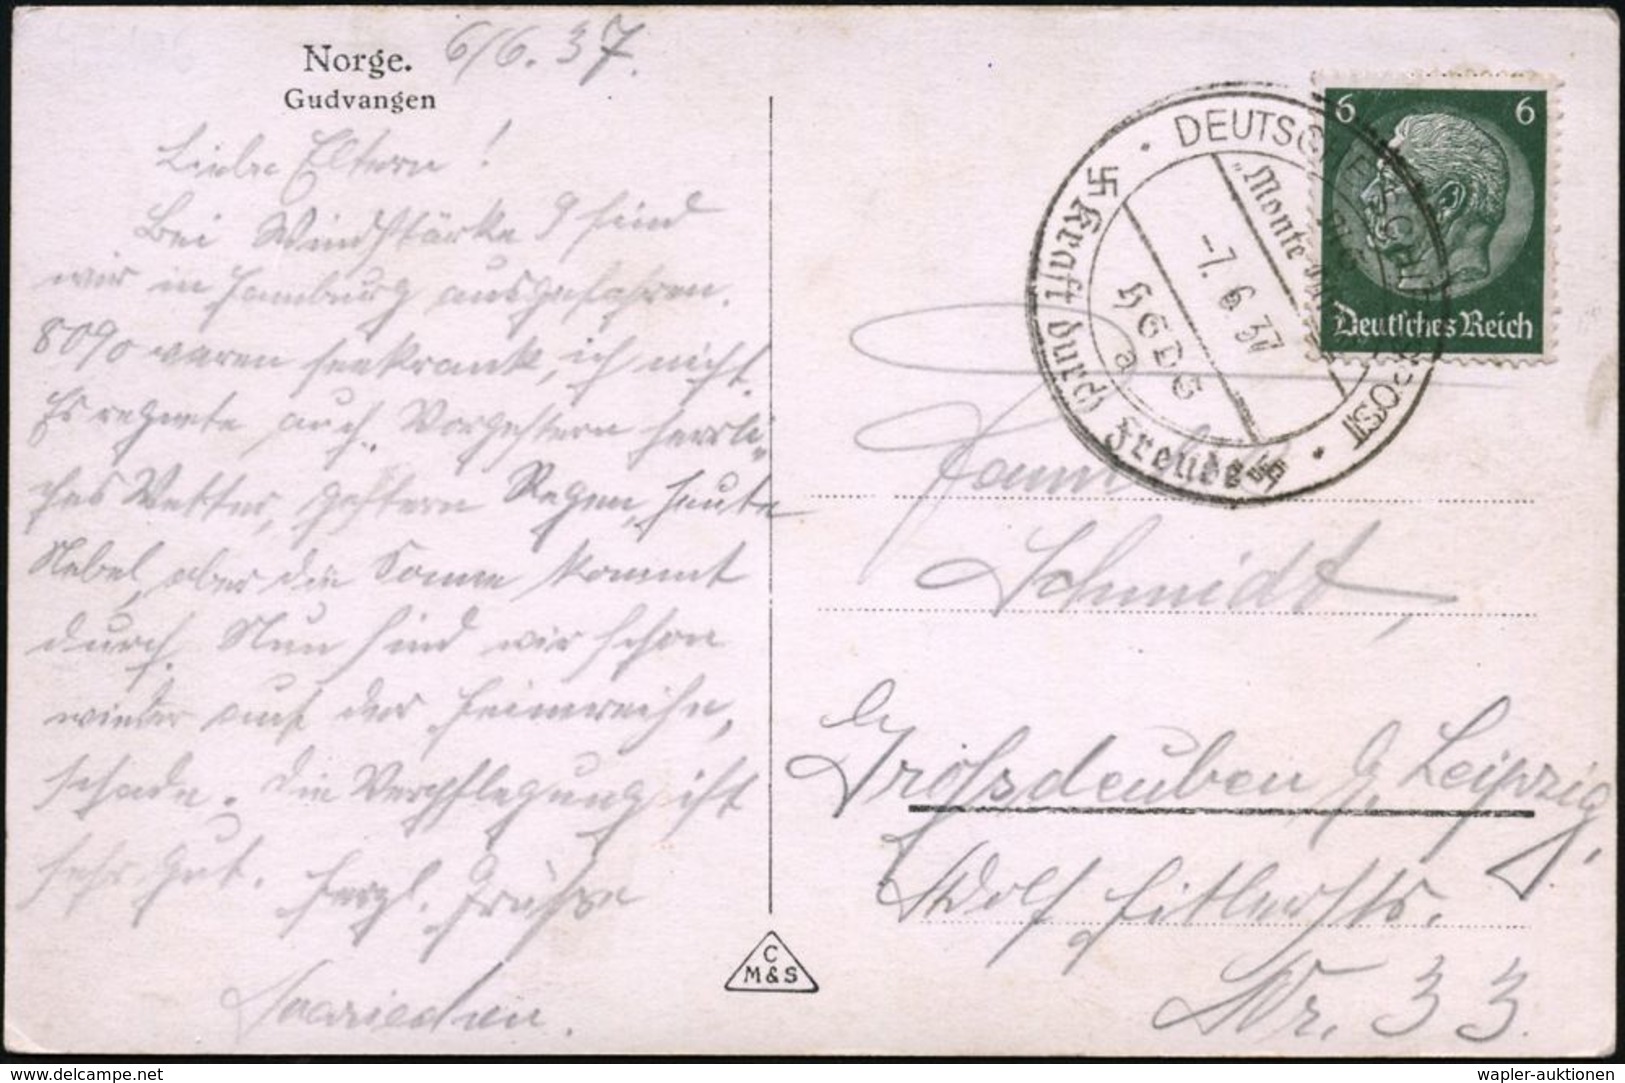 Norge. 6/6. 37.
Gudvangen
Liebe Eltern!
Bei Windstärke 9 sind
wir in Hamburg ausgefahren.
80% waren seekrank, ich nicht.
Es regnete auch. Vorgestern herrli-
ches Wetter, gestern Regen, heute
Nebel, aber die Sonne kommt
durch. Nun sind wir schon
wieder auf der Heimreise,
schade. Die Verpflegung ist
sehr gut. Herzl. Grüsse
C
M & S
DEUTSCHE SCHIFFSPOST
"Monte
-7. 6. 37
HSDG
a
Kraft durch Freude
6 6
Deutsches Reich
Familie
Schmidt,
Grossdeuben b. Leipzig,
Adolf Hitlerstr.
Nr. 33.
www.delcampe.net
wapler-auktionen